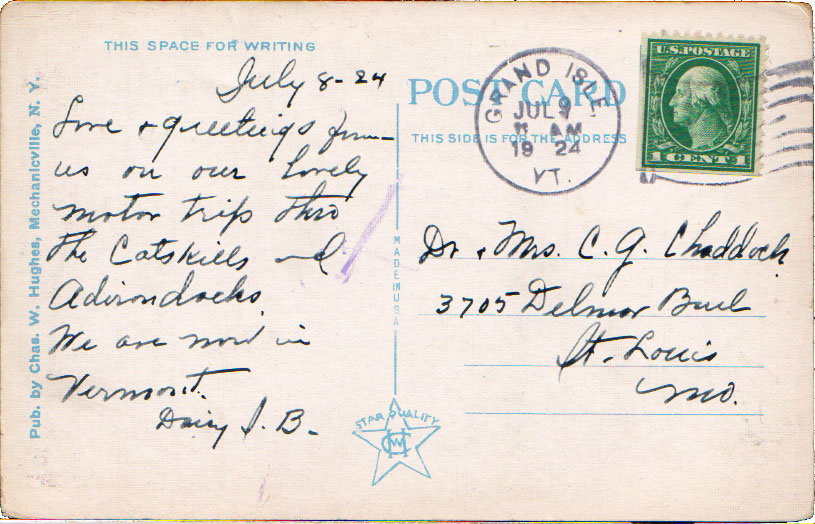 THIS SPACE FOR WRITING
July 8-24
Love & greetings from
us on our lovely
motor trip thro
the Catskills and
Adirondacks
We are now in
Vermont.
Daisy J. B.
Pub. by Chas. W. Hughes, Mechanicville, N. Y.
MADE IN USA
STAR QUALITY
POST CARD
THIS SIDE IS FOR THE ADDRESS
GRAND ISLE
JUL 9
11 AM
1924
VT.
U.S. POSTAGE
1 CENT 1
Dr & Mrs. C. G. Chaddock
3705 Delmar Bvul
St. Louis
Mo.